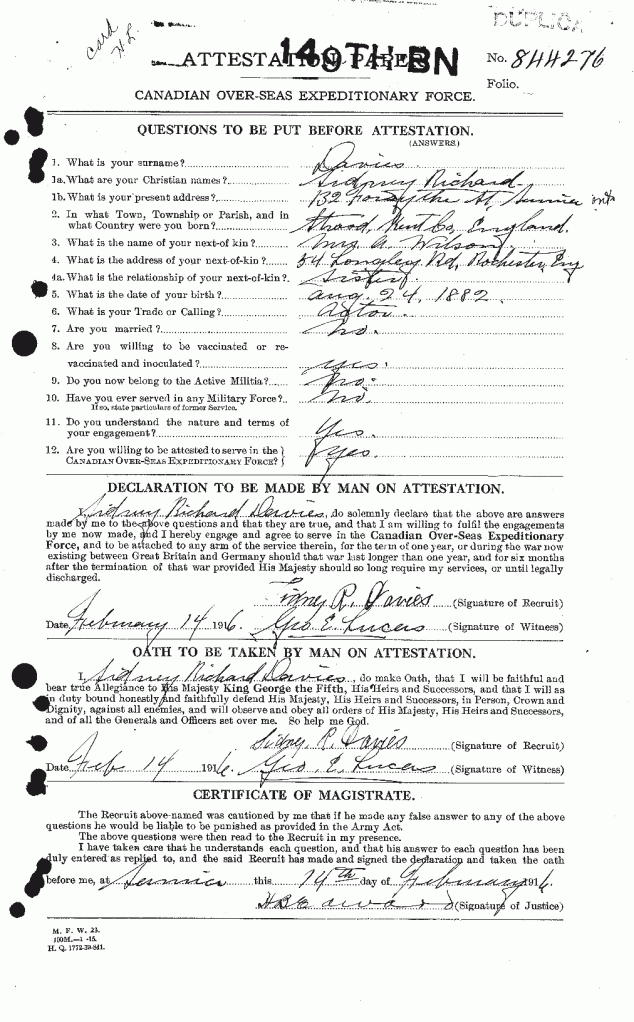 card
H.L.
DUPLICA
149TH BN
ATTESTATION PAPER
No. 844276
Folio.
CANADIAN OVER-SEAS EXPEDITIONARY FORCE.
QUESTIONS TO BE PUT BEFORE ATTESTATION.
(ANSWERS.)
1. What is your surname? Davies
1a. What are your Christian names? Sidney Richard
1b. What is your present address? 132 Forsythe St, Sarnia Ont
2. In what Town, Township or Parish, and in
what Country were you born? Strood, Kent Co, England.
3. What is the name of your next-of kin? Mrs A. Wilson
4. What is the address of your next-of-kin? 54 Longley Rd, Rochester, Eng
4a. What is the relationship of your next-of-kin? Sister
5. What is the date of your birth? Aug. 24, 1882.
6. What is your Trade or Calling? Actor
7. Are you married? No.
8. Are you willing to be vaccinated or re-
vaccinated and inoculated? Yes.
9. Do you now belong to the Active Militia? No.
10. Have you ever served in any Military Force? No.
If so, state particulars of former Service.
11. Do you understand the nature and terms of
your engagement? Yes.
12. Are you willing to be attested to serve in the
CANADIAN OVER-SEAS EXPEDITIONARY FORCE? Yes.
DECLARATION TO BE MADE BY MAN ON ATTESTATION.
I, Sidney Richard Davies, do solemnly declare that the above are answers
made by me to the above questions and that they are true, and that I am willing to fulfil the engagements
by me now made, and I hereby engage and agree to serve in the Canadian Over-Seas Expeditionary
Force, and to be attached to any arm of the service therein, for the term of one year, or during the war now
existing between Great Britain and Germany should that war last longer than one year, and for six months
after the termination of that war provided His Majesty should so long require my services, or until legally
discharged.
Sidney R. Davies (Signature of Recruit)
Date February 14 1916. Geo E. Lucas (Signature of Witness)
OATH TO BE TAKEN BY MAN ON ATTESTATION.
I, Sidney Richard Davies, do make Oath, that I will be faithful and
bear true Allegiance to His Majesty King George the Fifth, His Heirs and Successors, and that I will as
in duty bound honestly and faithfully defend His Majesty, His Heirs and Successors, in Person, Crown and
Dignity, against all enemies, and will observe and obey all orders of His Majesty, His Heirs and Successors,
and of all the Generals and Officers set over me. So help me God.
Sidney R. Davies (Signature of Recruit)
Date Feb 14 1916. Geo. E. Lucas (Signature of Witness)
CERTIFICATE OF MAGISTRATE.
The Recruit above-named was cautioned by me that if he made any false answer to any of the above
questions he would be liable to be punished as provided in the Army Act.
The above questions were then read to the Recruit in my presence.
I have taken care that he understands each question, and that his answer to each question has been
duly entered as replied to, and the said Recruit has made and signed the declaration and taken the oath
before me, at Sarnia this 14th day of February 1916.
(Signature of Justice)
M. F. W. 23.
H. Q. 1772-39-841.